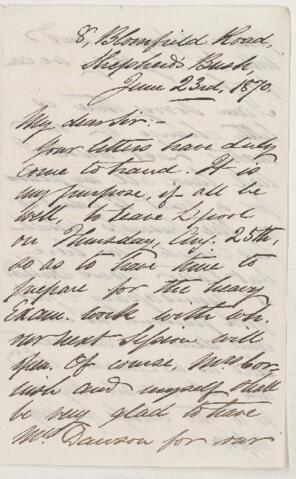 8, Blomfield Road,
Shepherd's Bush,
June 23rd, 1870.
My dear Sir:-
Your letters have duly
come to hand. It is
my purpose, if all be
well, to leave L'pool
on Thursday, Aug. 25th,
so as to have time to
prepare for the heavy
Exam. work with wh.
our next Session will
open. Of course,
and myself shall
be very glad to have
Mrs Dawson for our